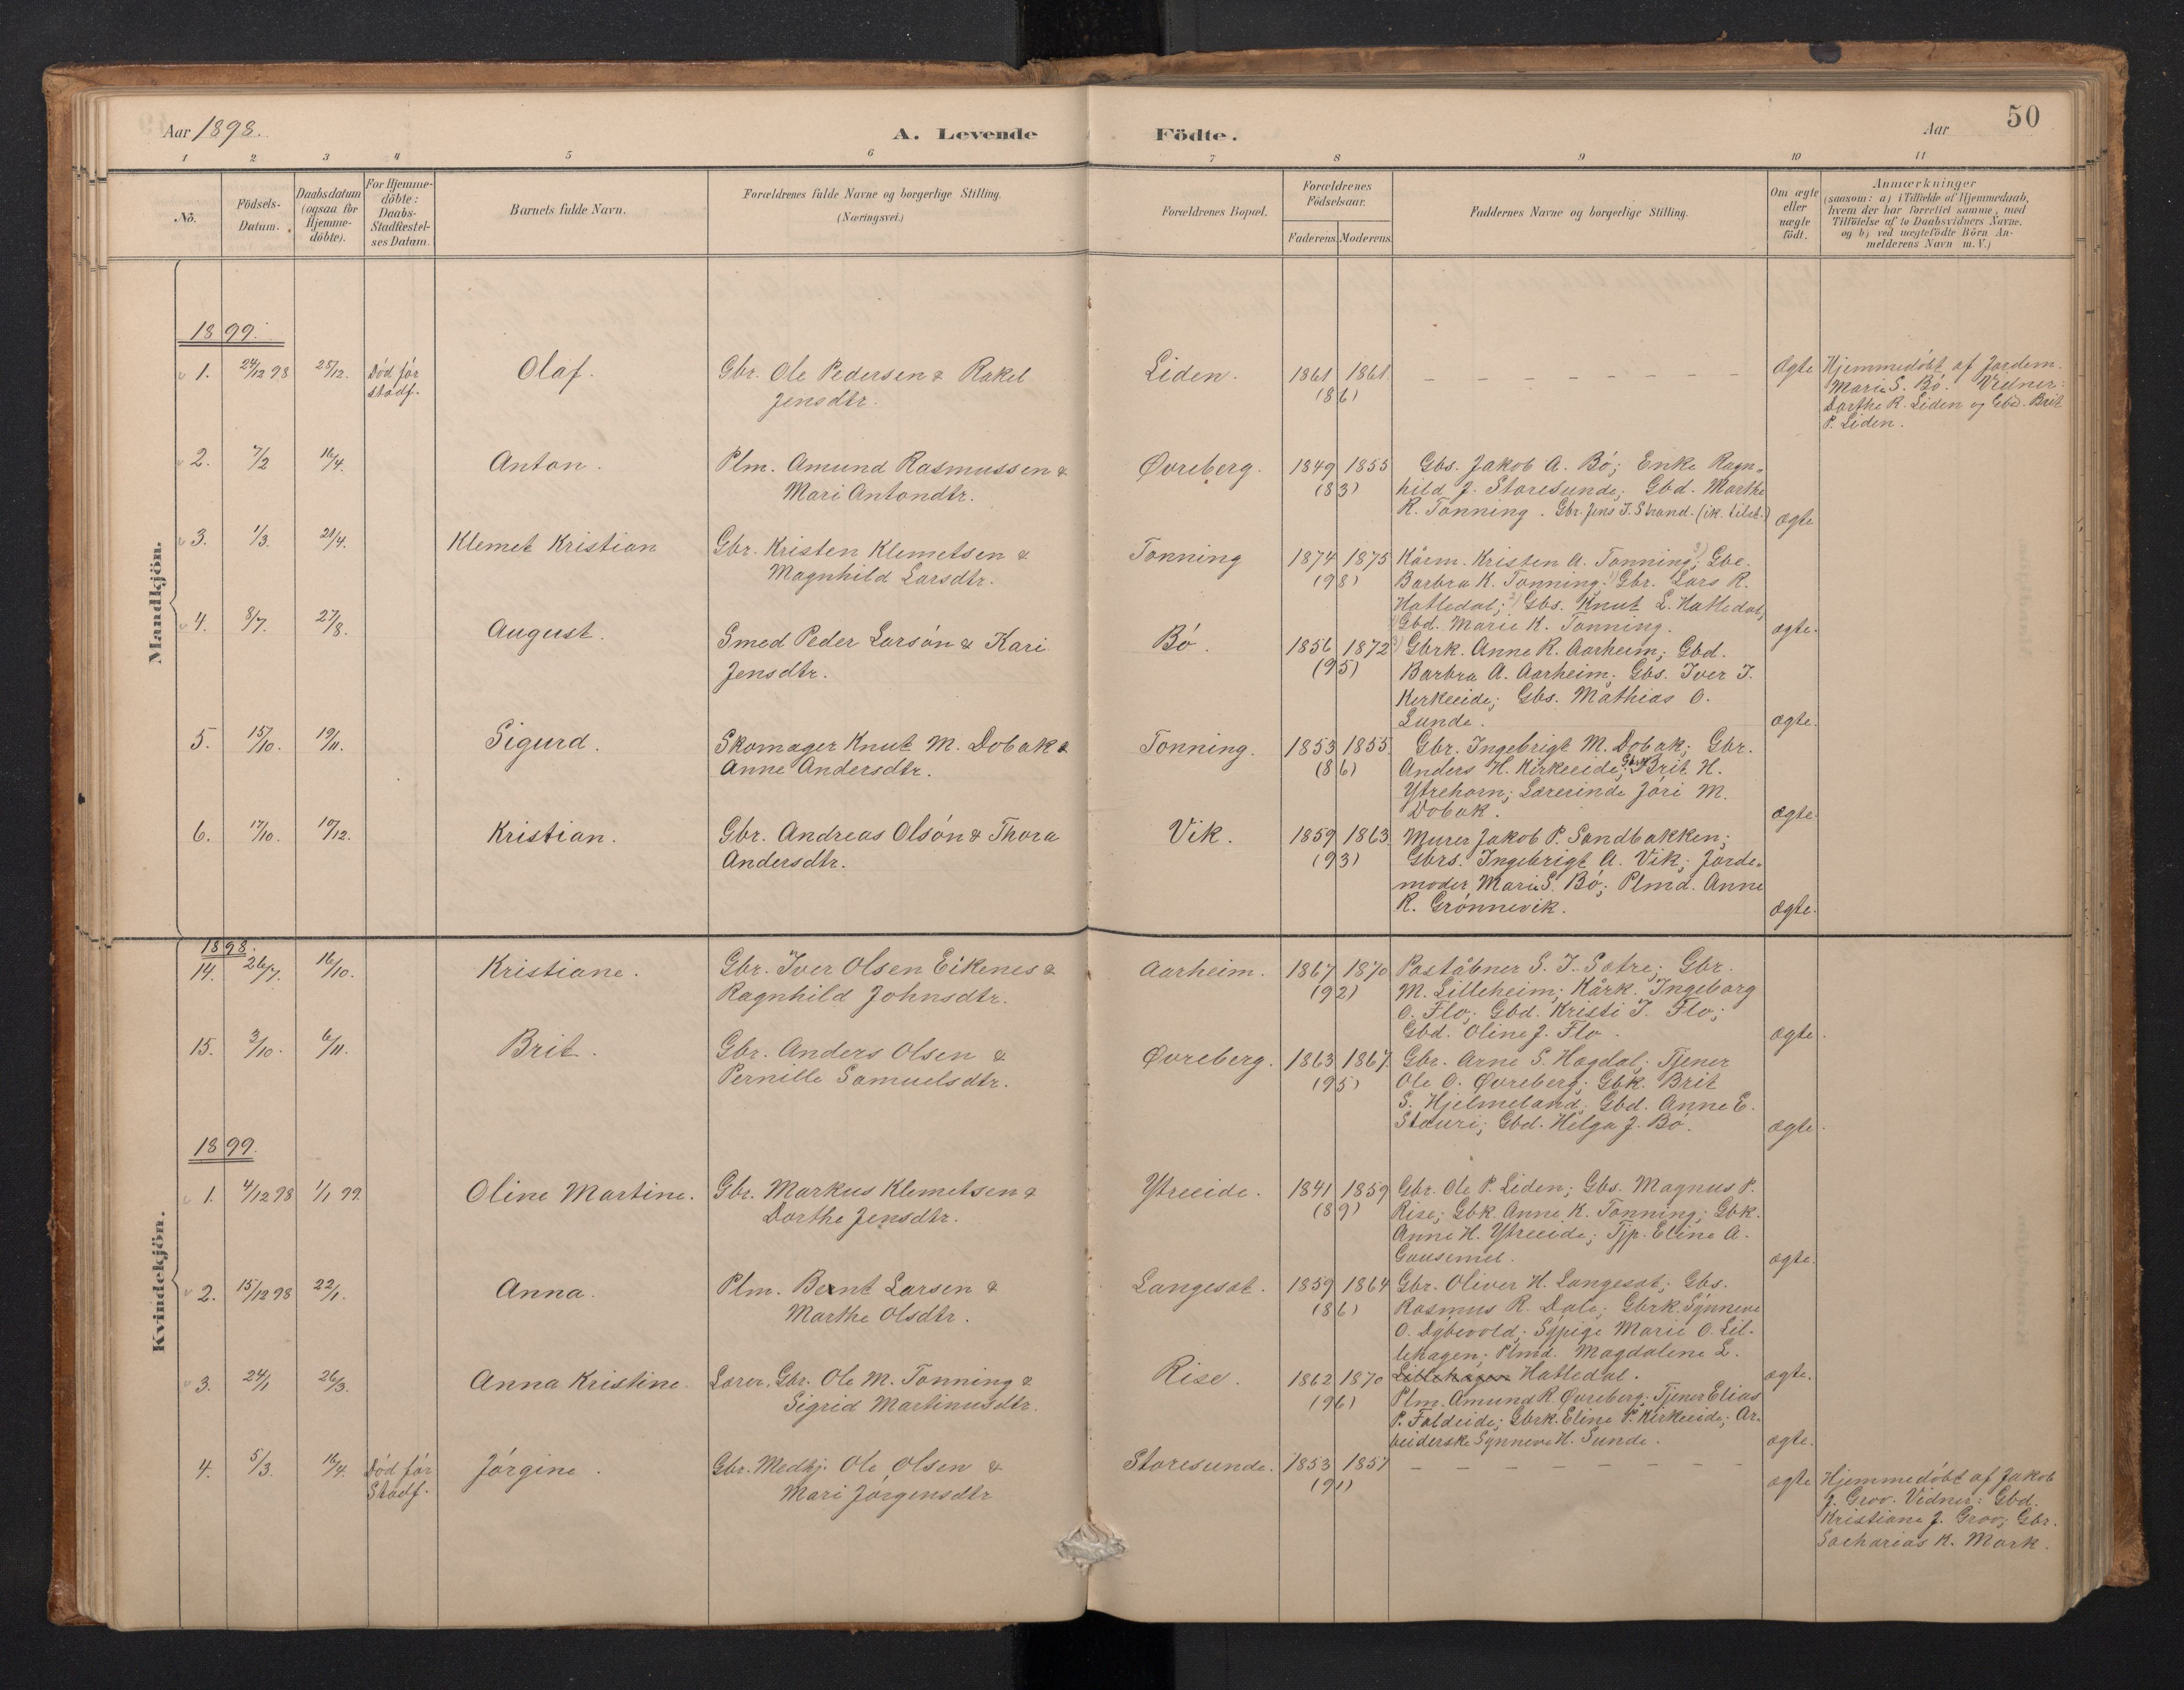 Aar 1898.
A. Levende Födte.
Aar
50
1 2 3 4 5 6 7 8 9 10 11
No.
Födsels-
Datum.
Daabsdatum
(ogsaa for
Hjemme-
döbte).
For Hjemme-
döbte:
Daabs-
Stadfæstel-
ses Datum.
Barnets fulde Navn.
Forældrenes fulde Navne og borgerlige Stilling.
(Næringsvei.)
Forældrenes Bopæl.
Forældrenes
Födselsaar.
Faderens. Moderens.
Faddernes Navne og borgerlige Stilling.
Om ægte
eller
uægte
födt.
Anmærkninger
(saasom: a) i Tilfælde af Hjemmedaab,
hvem der har forrettet samme, med
Tilföielse af to Daabsvidners Navne.
og b) ved uægtefödte Börn An-
melderens Navn m.V.)
Mandkjön.
1899.
1. 24/12 98 28/12. Död før
stadf.
Olaf.
Gbr. Ole Pedersen & Rakel
Jensdtr.
Liden.
1861 1861
(86)
– – – – – – – –
Ægte
Hjemmedöbt af Jordem.
Marie S. Bö. Vidner:
Dorthe R. Liden og Gbd. Brit
P. Liden.
2. 7/2 16/4.
Anton.
Plm. Amund Rasmussen &
Mari Antondtr.
Øvreberg.
1849 1855
(83)
Gbs. Jakob A. Bö; Enke Ragn-
hild J. Storesunde; Gbd. Marthe
R. Tonning. Gbr. Jens J. Strand. (ik. tilst.)
ægte
3. 1/3. 21/4.
Klemet Kristian
Gbr. Kristen Klemetsen &
Magnhild Larsdtr.
Tonning
1874 1875
(98)
Kårm. Kristen A. Tonning; Gbe.
Barbra K. Tonning. Gbr. Lars R.
Hatledal; Gbs. Knut L. Hatledal,
Gbd. Marie K. Tonning.
ægte.
4. 8/7. 27/8.
August.
Smed Peder Larsön & Kari
Jensdtr.
Bö.
1856 1872
(95)
Gbrk. Anne R. Aarheim; Gbd.
Barbra A. Aarheim; Gbs. Iver J.
Kirkeeide; Gbs. Mathias O.
Lunde.
ægte.
5. 15/10. 19/11.
Sigurd.
Skomager Knut M. Dobak &
Anne Andersdtr.
Tonning.
1853 1855.
(86)
Gbr. Ingebrigt M. Dobak; Gbr.
Anders H. Kirkeeide; Gbrk. Brit H.
Ytrehorn; Lærerinde Jöri M.
Dobak.
ægte.
6. 17/10. 10/12.
Kristian.
Gbr. Andreas Olsön & Thora
Andersdtr.
Vik.
1859 1863.
(93)
Murer Jakob P. Sandbakken;
Gbrs. Ingebrigt A. Vik; Jorde-
moder Marie S. Bö; Plmd. Anne
R. Grönnevik.
Ægte.
Kvindekjön.
1898.
14. 26/7. 16/10.
Kristiane.
Gbr. Iver Olsen Eikenes &
Ragnhild Johnsdtr.
Aarheim.
1867 1870
(92)
Poståbner S. J. Sætre; Gbr.
M. Lilleheim; Kårk. Ingeborg
O. Flo; Gbd. Kristi J. Flo;
Gbd. Oline J. Flo.
ægte.
15. 3/10. 6/11.
Brit.
Gbr. Anders Olsen &
Pernille Samuelsdtr.
Øvreberg.
1863 1867.
(95)
Gbr. Arne S. Hogdal; Tjener
Ole O. Øvreberg; Gbk. Brit
S. Hjelmeland; Gbd. Anne E.
Stauri; Gbd. Helga J. Bö.
ægte.
1899.
1. 4/12 98 1/1 99.
Oline Martine.
Gbr. Markus Klemetsen &
Dorthe Jensdtr.
Ytreeide.
1841 1859
(89)
Gbr. Ole P. Liden; Gbs. Magnus P.
Rise; Gbk. Anne K. Tonning; Gbk.
Anne H. Ytreeide; Tjp. Eline A.
Gausemel.
ægte.
2. 15/12 98 22/1.
Anna.
Plm. Bernt Larsen &
Marthe Olsdtr.
Langesæt.
1859 1864
(86)
Gbr. Oliver H. Langesæt; Gbs.
Rasmus R. Dale; Gbrk. Synneve
O. Dybevold; Sypige Marie O. Lil-
lehagen; Plmd. Magdalene L.
Lillehagen Hatledal.
ægte.
3. 24/1 26/3.
Anna Kristine.
Lærer, Gbr. Ole M. Tonning &
Sigrid Martinusdtr.
Rise.
1862 1870
(96)
Plm. Amund R. Øvreberg; Tjener Elias
P. Foldeide; Gbrk. Eline P. Kirkeeide; Ar-
beiderske Synneve H. Sunde.
ægte.
4. 5/3. 16/4. Död før
Stadf.
Jörgine.
Gbr. Medhj. Ole Olsen &
Mari Jörgensdtr
Storesunde.
1853 1857
(91)
– – – – – – – –
ægte
Hjemmedöbt af Jakob
J. Grov. Vidner: Gbd.
Kristiane J. Grov; Gbr.
Sacharias K. Mork.